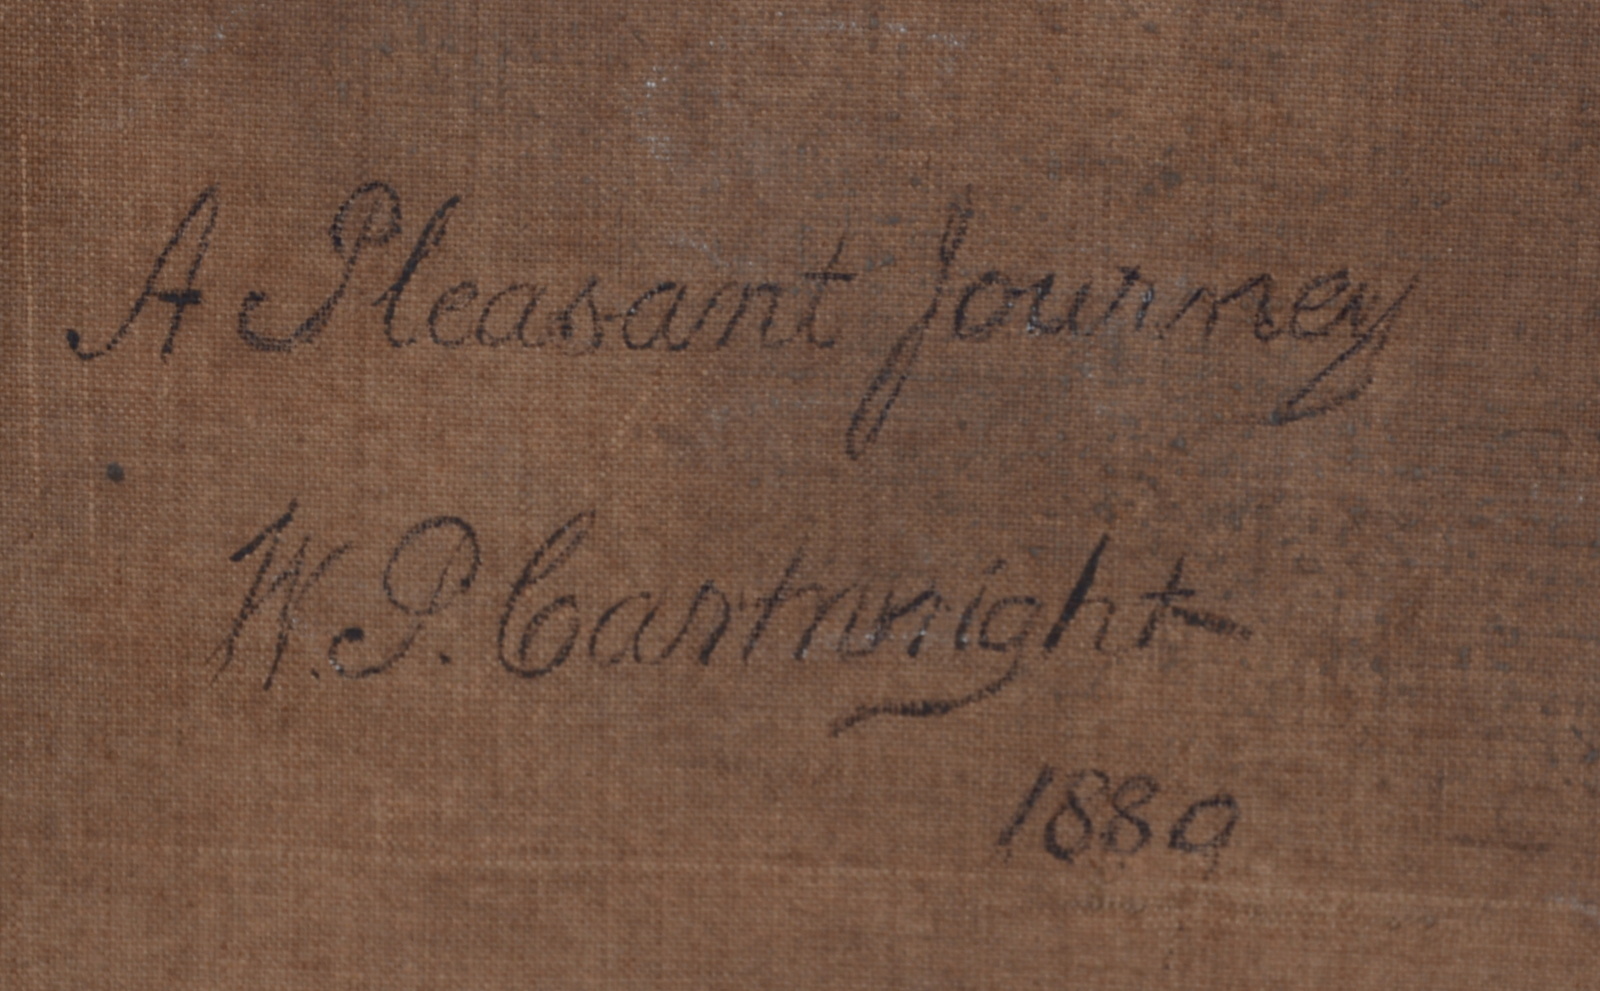 A Pleasant Journey
W. P. Cartwright
1889